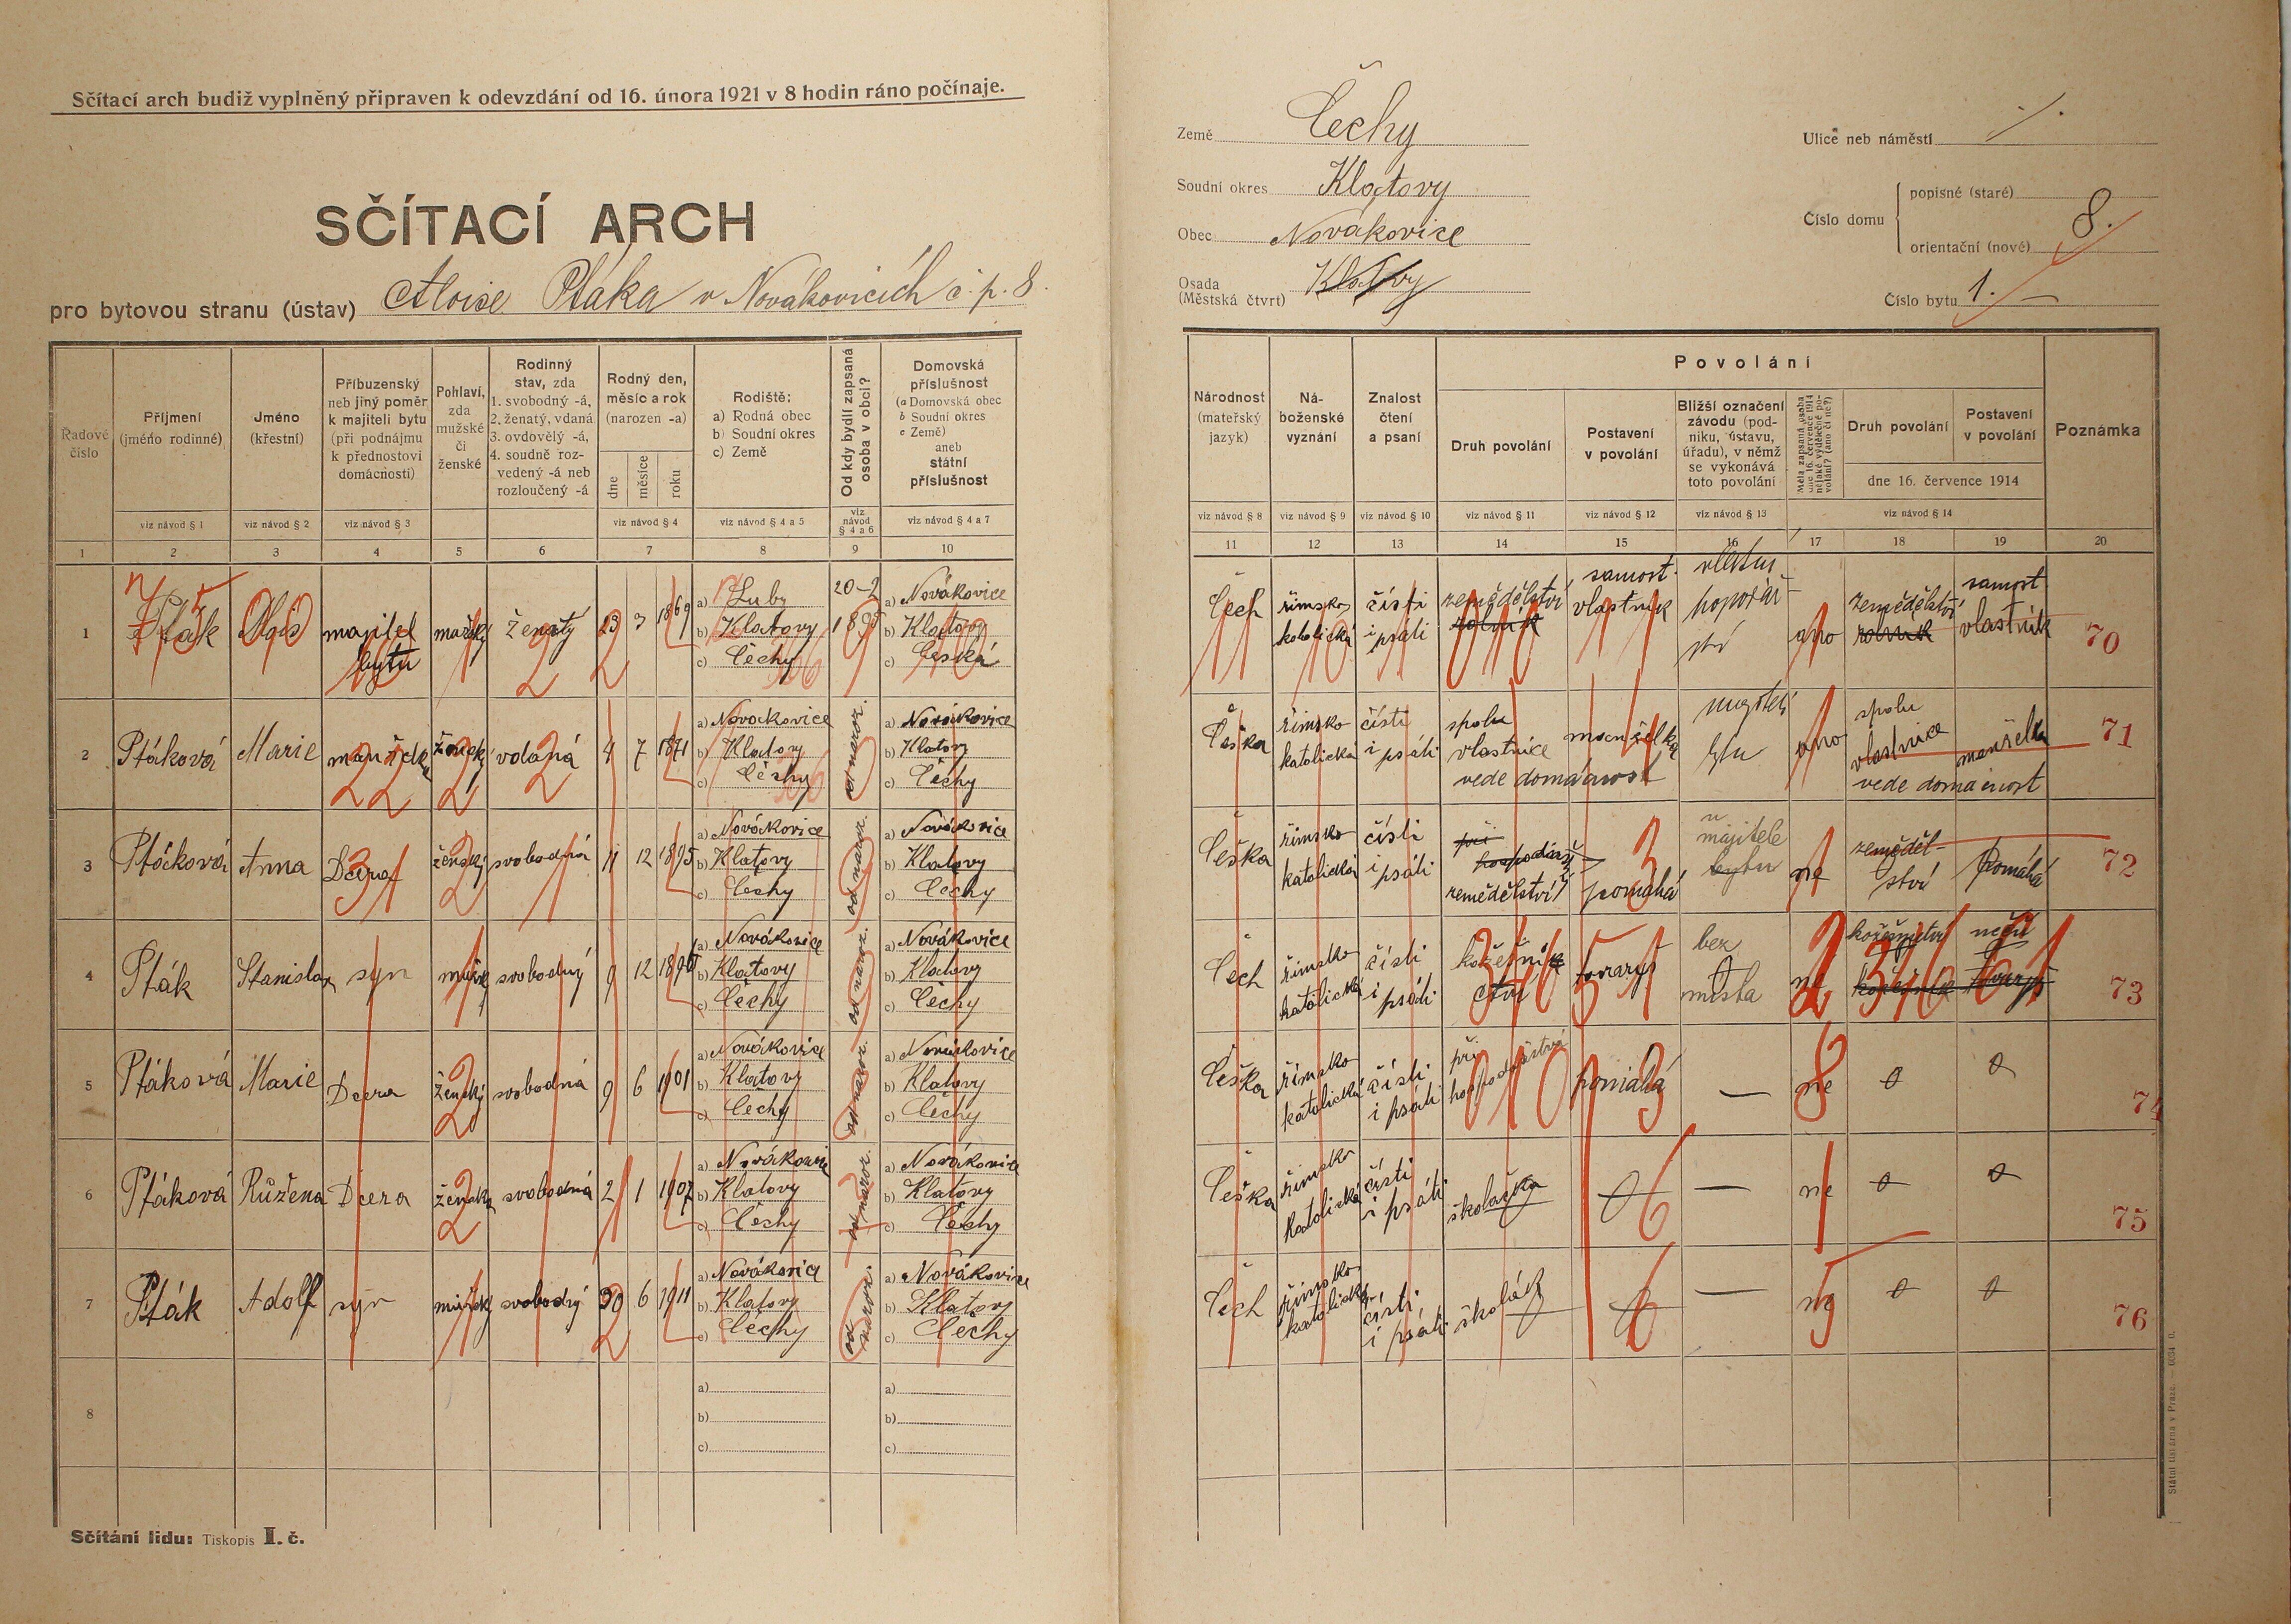 Sčítací arch budiž vyplněný připraven k odevzdání od 16. února 1921 v 8 hodin ráno počínaje.
SČÍTACÍ ARCH
pro bytovou stranu (ústav) Aloise Ptáka v Novákovicích č. p. 8.
Země Čechy
Soudní okres Klatovy
Obec Novákovice
Osada
(Městská čtvrt) Klatovy
Ulice neb náměstí
Číslo domu
popisné (staré)
8.
orientační (nové)
Číslo bytu 1.
Řadové číslo
Příjmení
(jméno rodinné)
Jméno
(křestní)
Příbuzenský
neb jiný poměr
k majiteli bytu
(při podnájmu
k přednostovi
domácnosti)
Pohlaví,
zda
mužské
či
ženské
Rodinný
stav, zda
1. svobodný -á,
2. ženatý, vdaná
3. ovdovělý -á,
4. soudně roz-
vedený -á neb
rozloučený -á
Rodný den,
měsíc a rok
(narozen -a)
dne
měsíce
roku
Rodiště:
a) Rodná obec
b) Soudní okres
c) Země
Od kdy bydlí zapsaná
osoba v obci?
Domovská
příslušnost
(a Domovská obec
b Soudní okres
c Země)
aneb
státní
příslušnost
Národnost
(mateřský
jazyk)
Ná-
boženské
vyznání
Znalost
čtení
a psaní
Povolání
Druh povolání
Postavení
v povolání
Bližší označení
závodu (pod-
niku, ústavu,
úřadu), v němž
se vykonává
toto povolání
Měla zapsaná osoba
dne 16. července 1914
nějaké výdělečné po-
volání? (ano či ne?)
Druh povolání
Postavení
v povolání
dne 16. července 1914
Poznámka
viz návod § 1
viz návod § 2
viz návod § 3
viz návod § 4
viz návod § 4 a 5
viz
návod
§ 4 a 6
viz návod § 4 a 7
viz návod § 8
viz návod § 9
viz návod § 10
viz návod § 11
viz návod § 12
viz návod § 13
viz návod § 14
1 2 3 4 5 6 7 8 9 10
11 12 13 14 15 16 17 18 19 20
1 Pták Alois majitel bytu mužský ženatý 23 3 1869
a) Luby
b) Klatovy
c) Čechy
20-2
a) Novákovice
b) Klatovy
c) Česká
Čech římsko katolická čísti i psáti zemědělství rolník samost. vlastník
ano zemědělství rolník samost vlastník 70
2 Ptáková Marie manželka ženský vdaná 4 7 1871
a) Novákovice
b) Klatovy
c) Čechy
od naroz.
a) Novákovice
b) Klatovy
c) Čechy
Češka římsko katolická čísti i psáti spolu vlastnice manželka
vede domácnost
ano spolu vlastnice manželka
vede domácnost 71
3 Ptáková Anna Dcera ženský svobodná 11 12 1895
a) Novákovice
b) Klatovy
c) Čechy
od naroz.
a) Novákovice
b) Klatovy
c) Čechy
Češka římsko katolická čísti i psáti při hospodářství
zemědělství pomáhá
u majitele bytu
ne zeměděl- ství pomáhá 72
4 Pták Stanislav syn mužský svobodný 9 12
a) Novákovice
b) Klatovy
c) Čechy
od naroz.
a) Novákovice
b) Klatovy
c) Čechy
Čech římsko katolická čísti i psáti tovaryš
bez místa
ne kožešník tovaryš 73
5 Ptáková Marie Dcera ženský svobodná 9 6 1901
a) Novákovice
b) Klatovy
c) Čechy
od naroz.
a) Novákovice
b) Klatovy
c) Čechy
Češka římsko katolická čísti i psáti při hospodářství pomáhá — ne 0 0 74
6 Ptáková Růžena Dcera ženska svobodná 21 1 1907
a) Novákovice
b) Klatovy
c) Čechy
od naroz.
a) Novákovice
b) Klatovy
c) Čechy
Češka římsko katolická čísti i psáti školačka 0 — ne 0 0 75
7 Pták Adolf syn mužský svobodný 6 1911
a) Novákovice
b) Klatovy
c) Čechy
od naroz.
a) Novákovice
b) Klatovy
c) Čechy
Čech římsko katolická čísti i psáti školák — ne 0 0 76
8
a)
b)
c)
a)
b)
c)
Sčítání lidu: Tiskopis I. č.